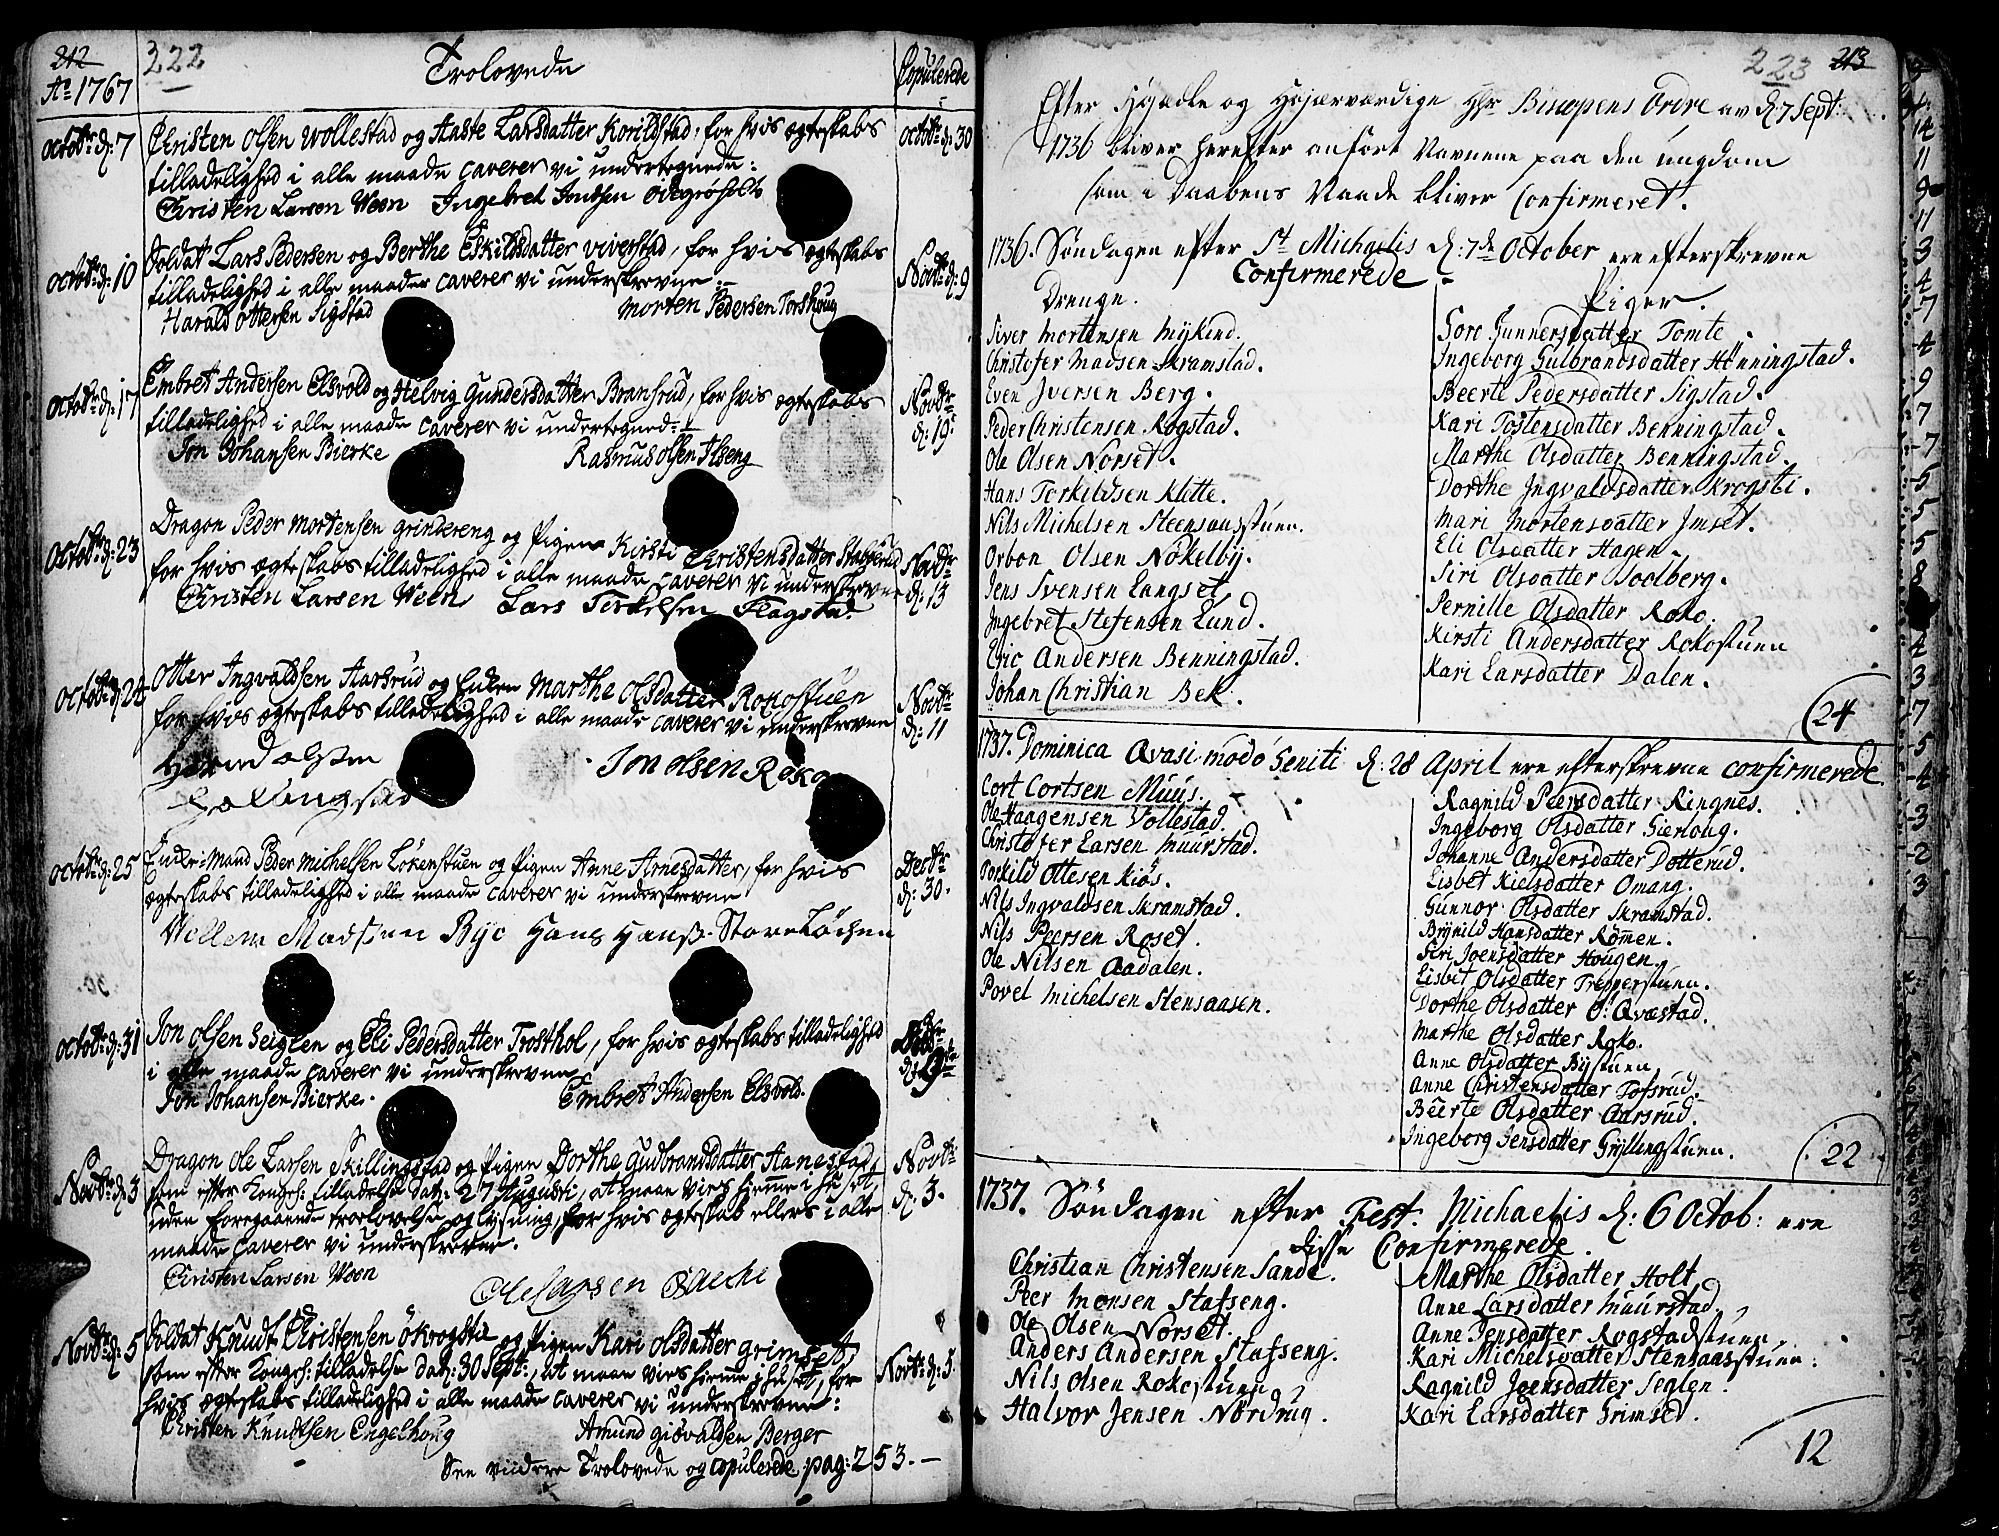 212 222
Troloved​e
Copulerede
Ao 1767
Octobr: d: 7
Christen Olsen Wollestad og Aaste Larsdatter Korildstad, for hvis ægteskabs
tilladelighed i alle maade caverer vi undertegnede:
Christen Larsen Ween Ingebret Joutsen
Octobr: 30
Octobr: d: 10
Soldat Lars Pedersen og Berthe Eskildsdatter Viverstad, for hvis ægteskabs
tilladelighed i alle maader caverer vi underskrevne:
Harald Ottersen Sigstad Morten Pedersen Torshoug
Novbr: d: 9
Octobr: d: 17
Embret Andersen Elsvold og Helvig Gundersdatter Bransrud, for hvis ægteskabs
tilladelighed i alle maade caverer vi undertegned:
Jon Johansen Bierke Rasmus Olsen Ilseng
Novbr: d: 19
Octobr: d: 23
Dragon Peder Mortensen Grindereng og Pigen Kirsti Christensdatter
for hvis ægteskabs tilladelighed i alle maade caverer vi underskrevne
Christen Larsen Ween Lars Terkelsen Flagstad.
Novbr: d: 13
Octobr: d: 24
Otter Ingvaldsen Aarsrud og Enken Marthe Olsdatter Rokostuen
for hvis ægteskabs tilladelighed i alle maade caverer vi underskrevne
Jon Olsen Roko
Novbr: d: 11
Octobr: d: 25
Enke-Mand Peder Michelsen Lökenstuen og Pigen Anne Arnesdatter, for hvis
ægteskabs tilladelighed i alle maade caverer vi underskrevne
Wellem Madssen Bye Hans Hanß. Store Löchen
Decbr: d: 30.
Octobr: d: 31
Jon Olsen Seiglen og Eli Pedersdatter Trosthol, for hvis ægteskabs tilladelighed
i alle maade caverer vi underskrevne
Jon Johansen Bierke. Embret Andersen Elsvold.
Novbr: d: 3
Dragon Ole Larsen Skillingstad og Pigen Dorthe Gudbrandsdatter Aanestad,
som efter Kongel: tilladelse dat: 27 Augusti, at maae vies hiemme i huset,
uden foregaaende troelovelse og lysning, for hvis ægteskab ellers i alle
maade caverer vi underskrevne.
Christen Larsen Ween Ole Larsen
Novbr: d: 3.
Novbr: d: 5
Soldat Knudt Christensen Økrogstie og Pigen Kari Olsdatter Grimset
som efter Kongel: tilladelse dat: 30 Sept:, at maae vies hiemme i huset, for
hvis ægteskabs tilladelighed i alle maade caverer vi underskrevne:
Christen Knudtsen Engelhoug Amund Giövaldsen Berger
Novbr: d: 5.
See viidere Trolovede og copulerede pag: 253.
223 213
Efter Høyædle og Høyærværdige Hr Biscopens Ordre av d: 7 Sept:
1736 bliver herefter anfört Navnene paa den ungdom
som i Daabens Naade bliver Confirmeret.
1736. Søndagen efter St Michaelis d: 7de October ere efterskrevne
Confirmerede
Drenge.
Siver Mortensen Mykind.
Christofer Madsen Skramstad.
Even Iversen Berg.
Peder Christensen Rogstad.
Ole Olsen Norset.
Hans Torkeldsen Klette.
Nils Michelsen Steensaasstuen.
Orbon Olsen Nökelby.
Jens Svensen Langset
Ingebret Stefensen Lund.
Eric Andersen Benningstad.
Johan Christian Bek.
Piger.
Soro Gunnersdatter Tomte.
Ingeborg Gulbrandsdatter Hönningstad.
Beerte Pedersdatter Sigstad.
Kari Tostensdatter Benningstad.
Marthe Olsdatter Benningstad.
Dorthe Ingvaldsdatter Krogsti.
Mari Mortensdatter Imset.
Eli Olsdatter Hagen.
Siri Olsdatter Soelberg.
Pernille Olsdatter Roko.
Kirsti Andersdatter Rokostuen
Kari Larsdatter Dalen.
24
1737. Dominica Qvasimodo Geniti d: 28 April ere efterskrevne confirmerede.
Cort Cortsen Muus.
Ole Haagensen Vollestad.
Christofer Larsen Muurstad.
Torkild Ottesen Kiøs.
Nils Ingvaldsen Skramstad.
Nils Peersen Roset.
Ole Nilsen Aadalen.
Povel Michelsen Stensaasen.
Ragnild Peersdatter Ringnes.
Ingeborg Olsdatter Gierloug.
Johanne Andersdatter Dotterud.
Lisbet Kielsdatter Omang.
Gunnor Olsdatter Skramstad.
Brynild Hansdatter Römen.
Siri Joensdatter Hougen.
Lisbet Olsdatter Trepperstuen.
Dorthe Olsdatter O: Qvæstad.
Marthe Olsdatter Roko.
Anne Olsdatter Bystuen
Anne Christensdatter Tofsrud.
Beerte Olsdatter Aarsrud.
Ingeborg Jensdatter Gyllingstuen.
22
1737. Søndagen efter Fest. Michaelis d: 6 Octob: ere
disse Confirmerede.
Christian Christensen Sande.
Peer Monsen Stafseng.
Ole Olsen Norset.
Anders Andersen Stafseng.
Nils Olsen Rokostuen
Halvor Jensen Nordrug.
Marthe Olsdatter Holt
Anne Larsdatter Muurstad.
Anne Jensdatter Rogstadstuen.
Kari Michelsdatter Stensaasstuen.
Ragnild Joensdatter Seglen.
Kari Larsdatter Grimset.
12